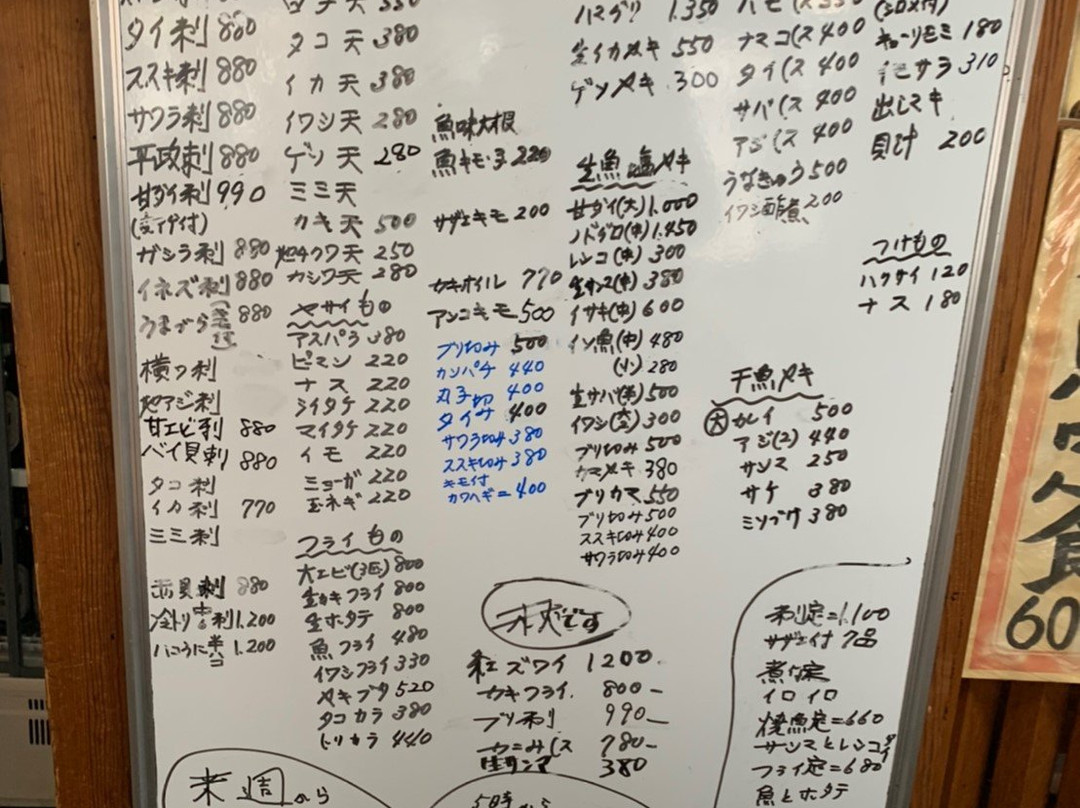 タイ刺 800
ススキ刺 880
サワラ刺 880
平政刺 880
甘ダイ刺 990
ガシラ刺 880
イネズ刺 880
うまづら 880
横ワ刺
地アジ刺
甘エビ刺 880
バイ貝刺 880
タコ刺
イカ刺 770
ミミ刺
赤貝刺 880
1,200
1,200
タコ天 380
イカ天 380
イワシ天 280
ゲソ天 280
ミミ天
カキ天 500
地チクワ天 250
カシワ天 280
ヤサイもの
アスパラ 380
ピーマン 220
ナス 220
シイタケ 220
マイタケ 220
イモ 220
ミョーガ 220
玉ネギ 220
フライもの
大エビ(3匹) 800
生カキフライ 800
生ホタテ 800
魚フライ 480
イワシフライ 330
ヤキブタ 520
タコカラ 380
トリカラ 440
魚味大根
魚キモ・子 220
サザエキモ 200
カキオイル 770
アンコキモ 500
ブリ切み 500
カンパチ 440
丸子切 400
タイみ 400
サワラ切み 380
ススキ切み 380
キモ付
カワハギ= 400
ハマグリ 1,350
生イカヤキ 550
ゲソヤキ 300
生魚塩ヤキ
甘ダイ(大) 1,000
ノドグロ(中) 1,450
レンコ(中) 300
生サンマ(中) 380
イサキ(中) 600
イソ魚(中) 480
(小) 280
生サバ(半) 500
イワシ 300
ブリ切み 500
カマヤキ 380
ブリカマ 550
ブリ切み 500
ススキ切み 400
サワラ切み 400
ナマコ(ス 400
タイ(ス 400
サバ(ス 400
アジ(ス 400
うなきゅう 500
イワシ酢煮 200
キューリモミ 180
イモサラ 310
出しマキ
貝汁 200
つけもの
ハクサイ 120
ナス 180
干魚ヤキ
大 カレイ 500
アジ(2) 440
サンマ 250
サケ 380
ミソづけ 380
紅ズワイ 1200
カキフライ 800-
ブリ刺 990-
カニみ(ス 780-
生サンマ 380
刺定=1,100
サザエ付 7品
煮付定
イロイロ
焼魚定=660
サンマとレンコダイ
フライ定=680
魚とホタテ
来週から
5時から
食
60